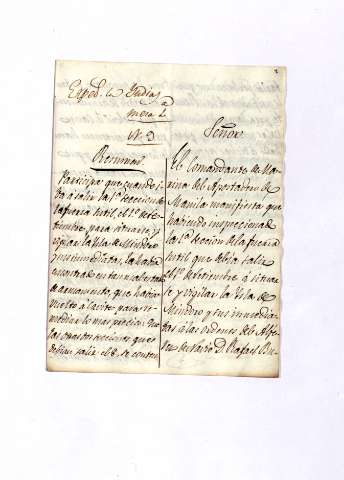 Exped. de Indias
mesa 2.a
N. 3
Resumen
Participa que cuando i-
ba à salir la 1.a Seccion de
la fuerza sutil el 1.o de Se-
tiembre para situarse, y
vigilar la Isla de Mindoro
y sus inmediatas, la habia
encontrado en tan mal estado
de armamento, que habia
vuelto à Cavite para re-
mediar lo mas preciso. Que
las cuatro secciones que
debian salir el 8. se contem
Señor
El Comandante de Ma-
rina del Apostadero de
Manila manifiesta que
habiendo inspeccionado
la 1.a Seccion de la fuerza
sutil que debia salir
el 1.o de Setiembre à situar-
se y vigilar la Isla de
Mindoro y sus inmedia-
tas à las ordenes del Alfe-
rez de Navio D. Rafael Bu-